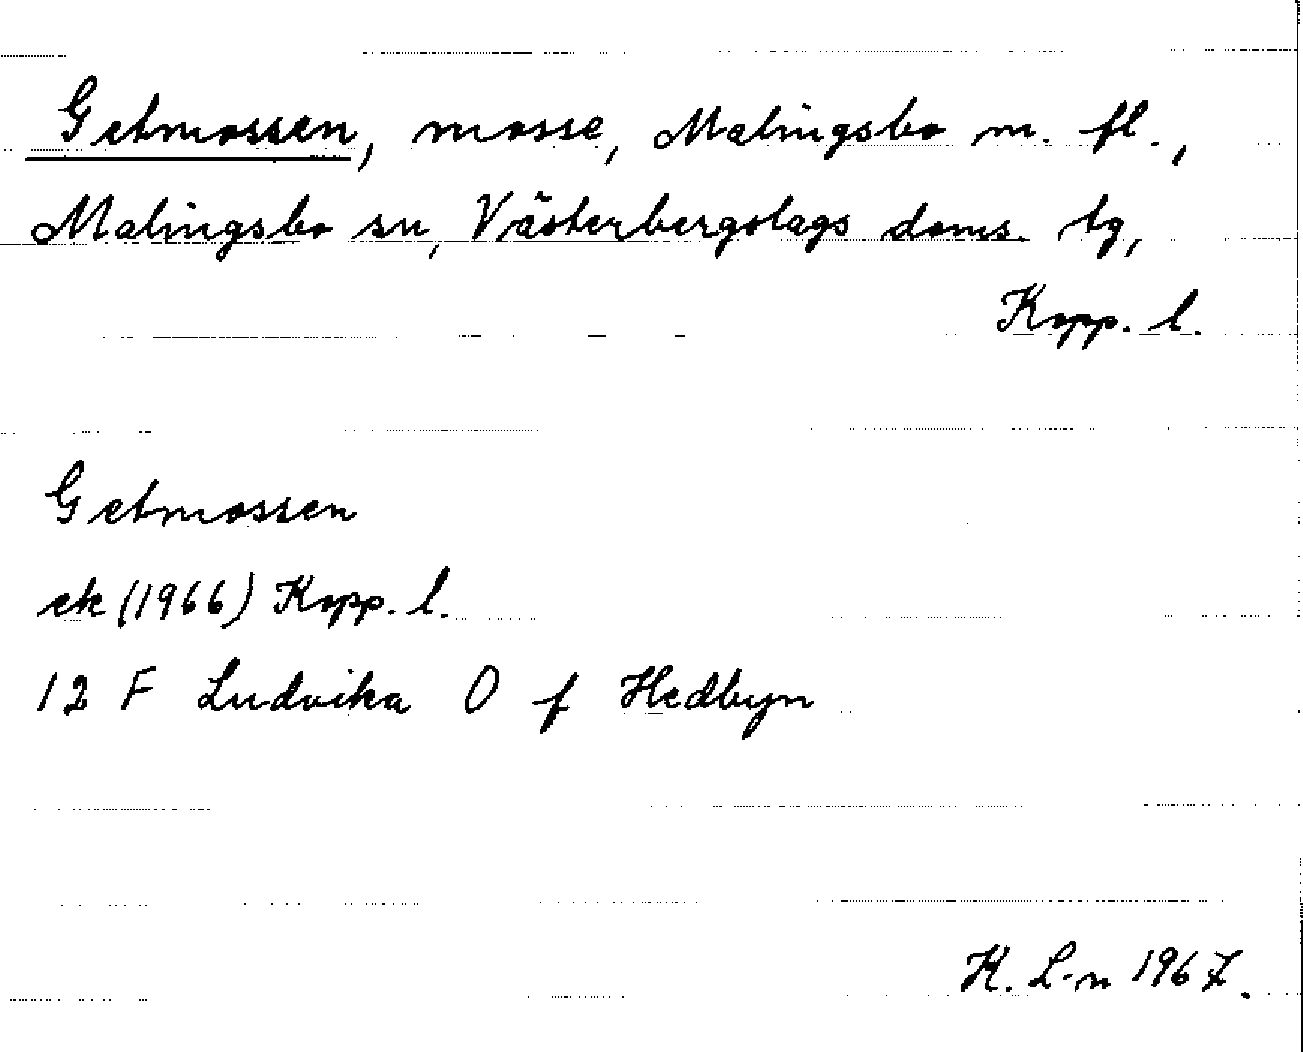 Getmossen, mosse, Malingsbo m. fl.,
Malingsbo sn, Västerbergslags doms. tg,
Kopp. l.
Getmossen
ek (1966) Kopp. l.
12 F Ludvika O f Hedbyn
H. L-n 1967.